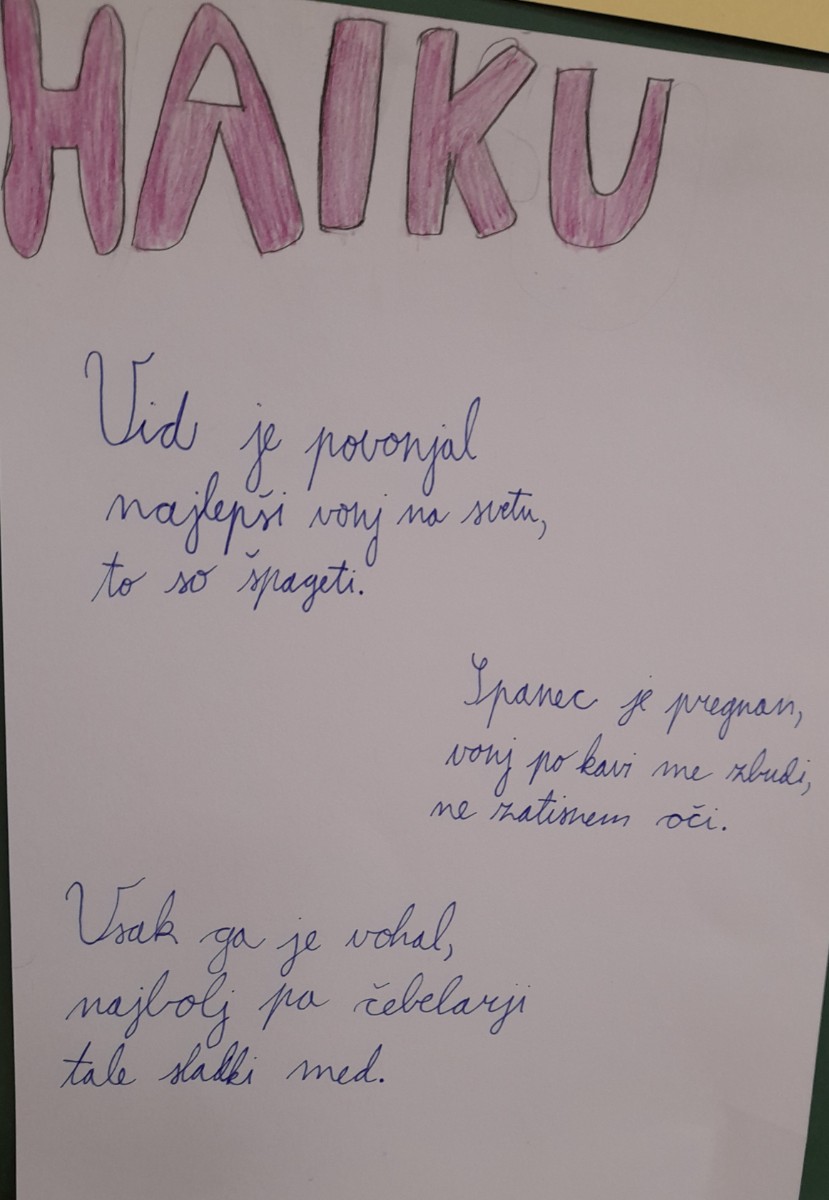 HAIKU
Vid je povonjal
najlepši vonj na svetu,
to so špageti.
Spanec je pregnan,
vonj po kavi me zbudi,
ne zatisnem oči.
Vsak ga je vohal,
najbolj pa čebelarji
tale sladki med.